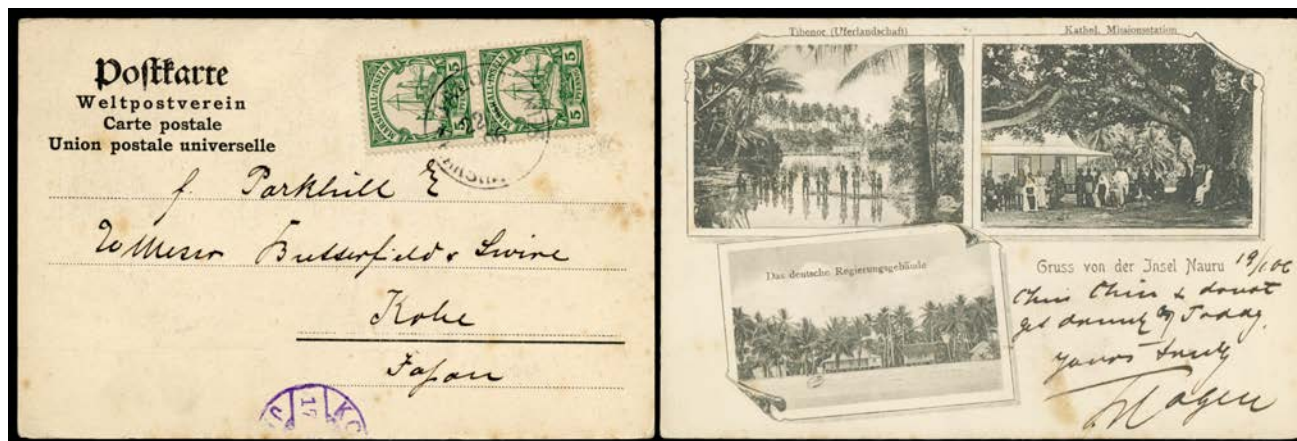 Postkarte
Weltpostverein
Carte postale
Union postale universelle
MARSHALL-INSELN
5 PFENNIG 5
MARSHALL-INSELN
5 PFENNIG 5
22
f. Parkhill
Messrs Butterfield & Swire
Kobe
Japan
17
KO
Tibenor (Uferlandschaft)
Kathol. Missionsstation
Das deutsche Regierungsgebäude
Gruss von der Insel Nauru 19/1 06
Chin Chin & donot
get drunk Today
yours truly